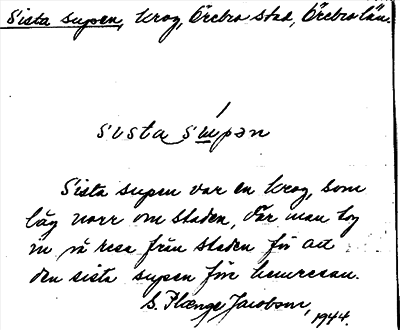 Sista supen, krog, Örebro stad, Örebro län.
Sista supen
Sista supen var en krog, som
låg norr om staden, där man tog
in på resa från staden för att
den sista supen före hemresan.
S. Plænge Jacobson, 1944.